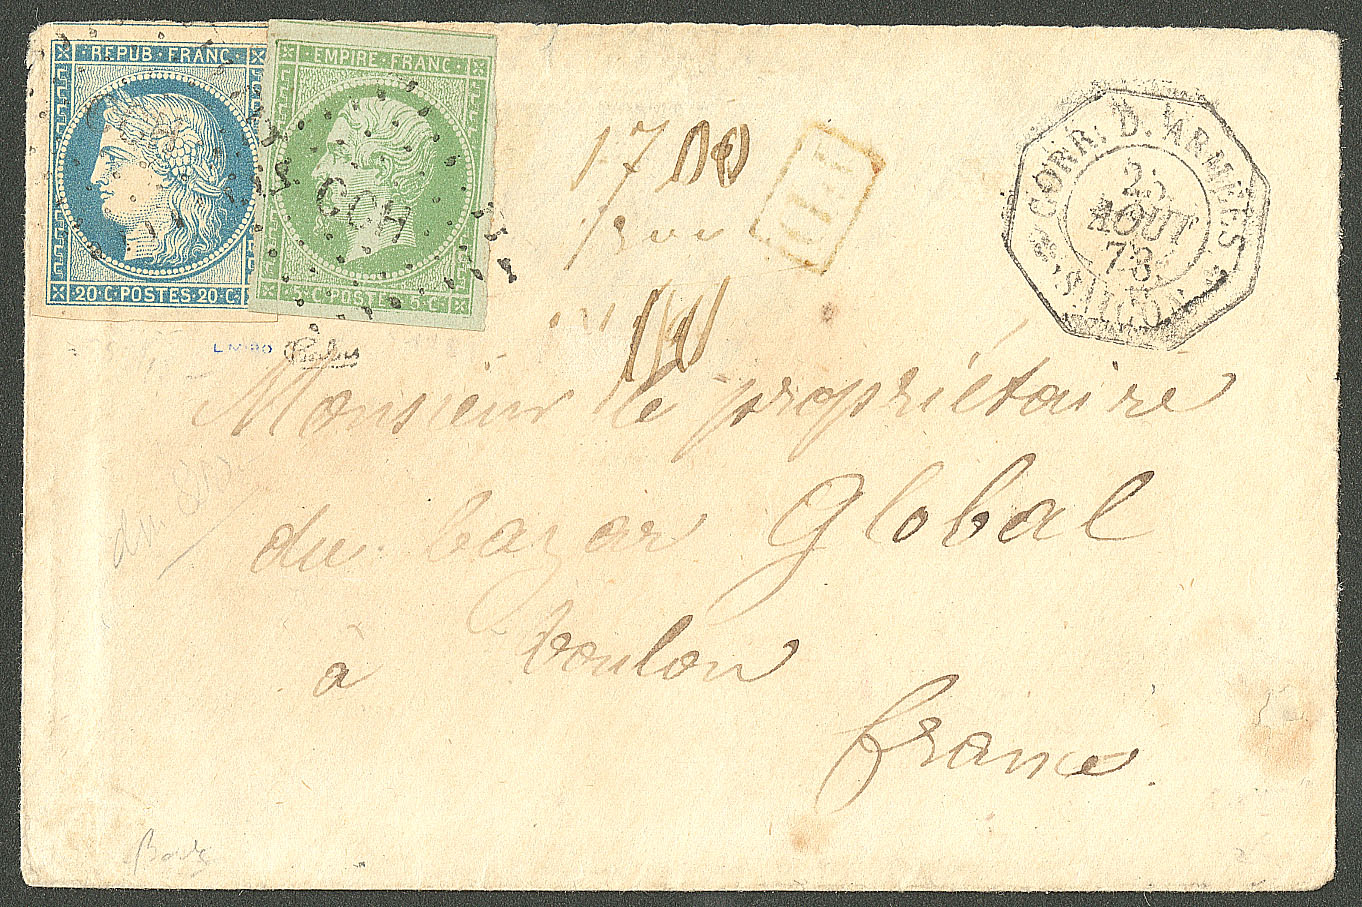 REPUB·FRANC·
20·C·POSTES·20·C·
EMPIRE·FRANC·
5·C·POSTES·5·C·
CCH
1700
CORR. D. ARMÉES
25
AOUT
73
SAIGON
Monsieur le propriétaire
du bazar Global
à toulon
france